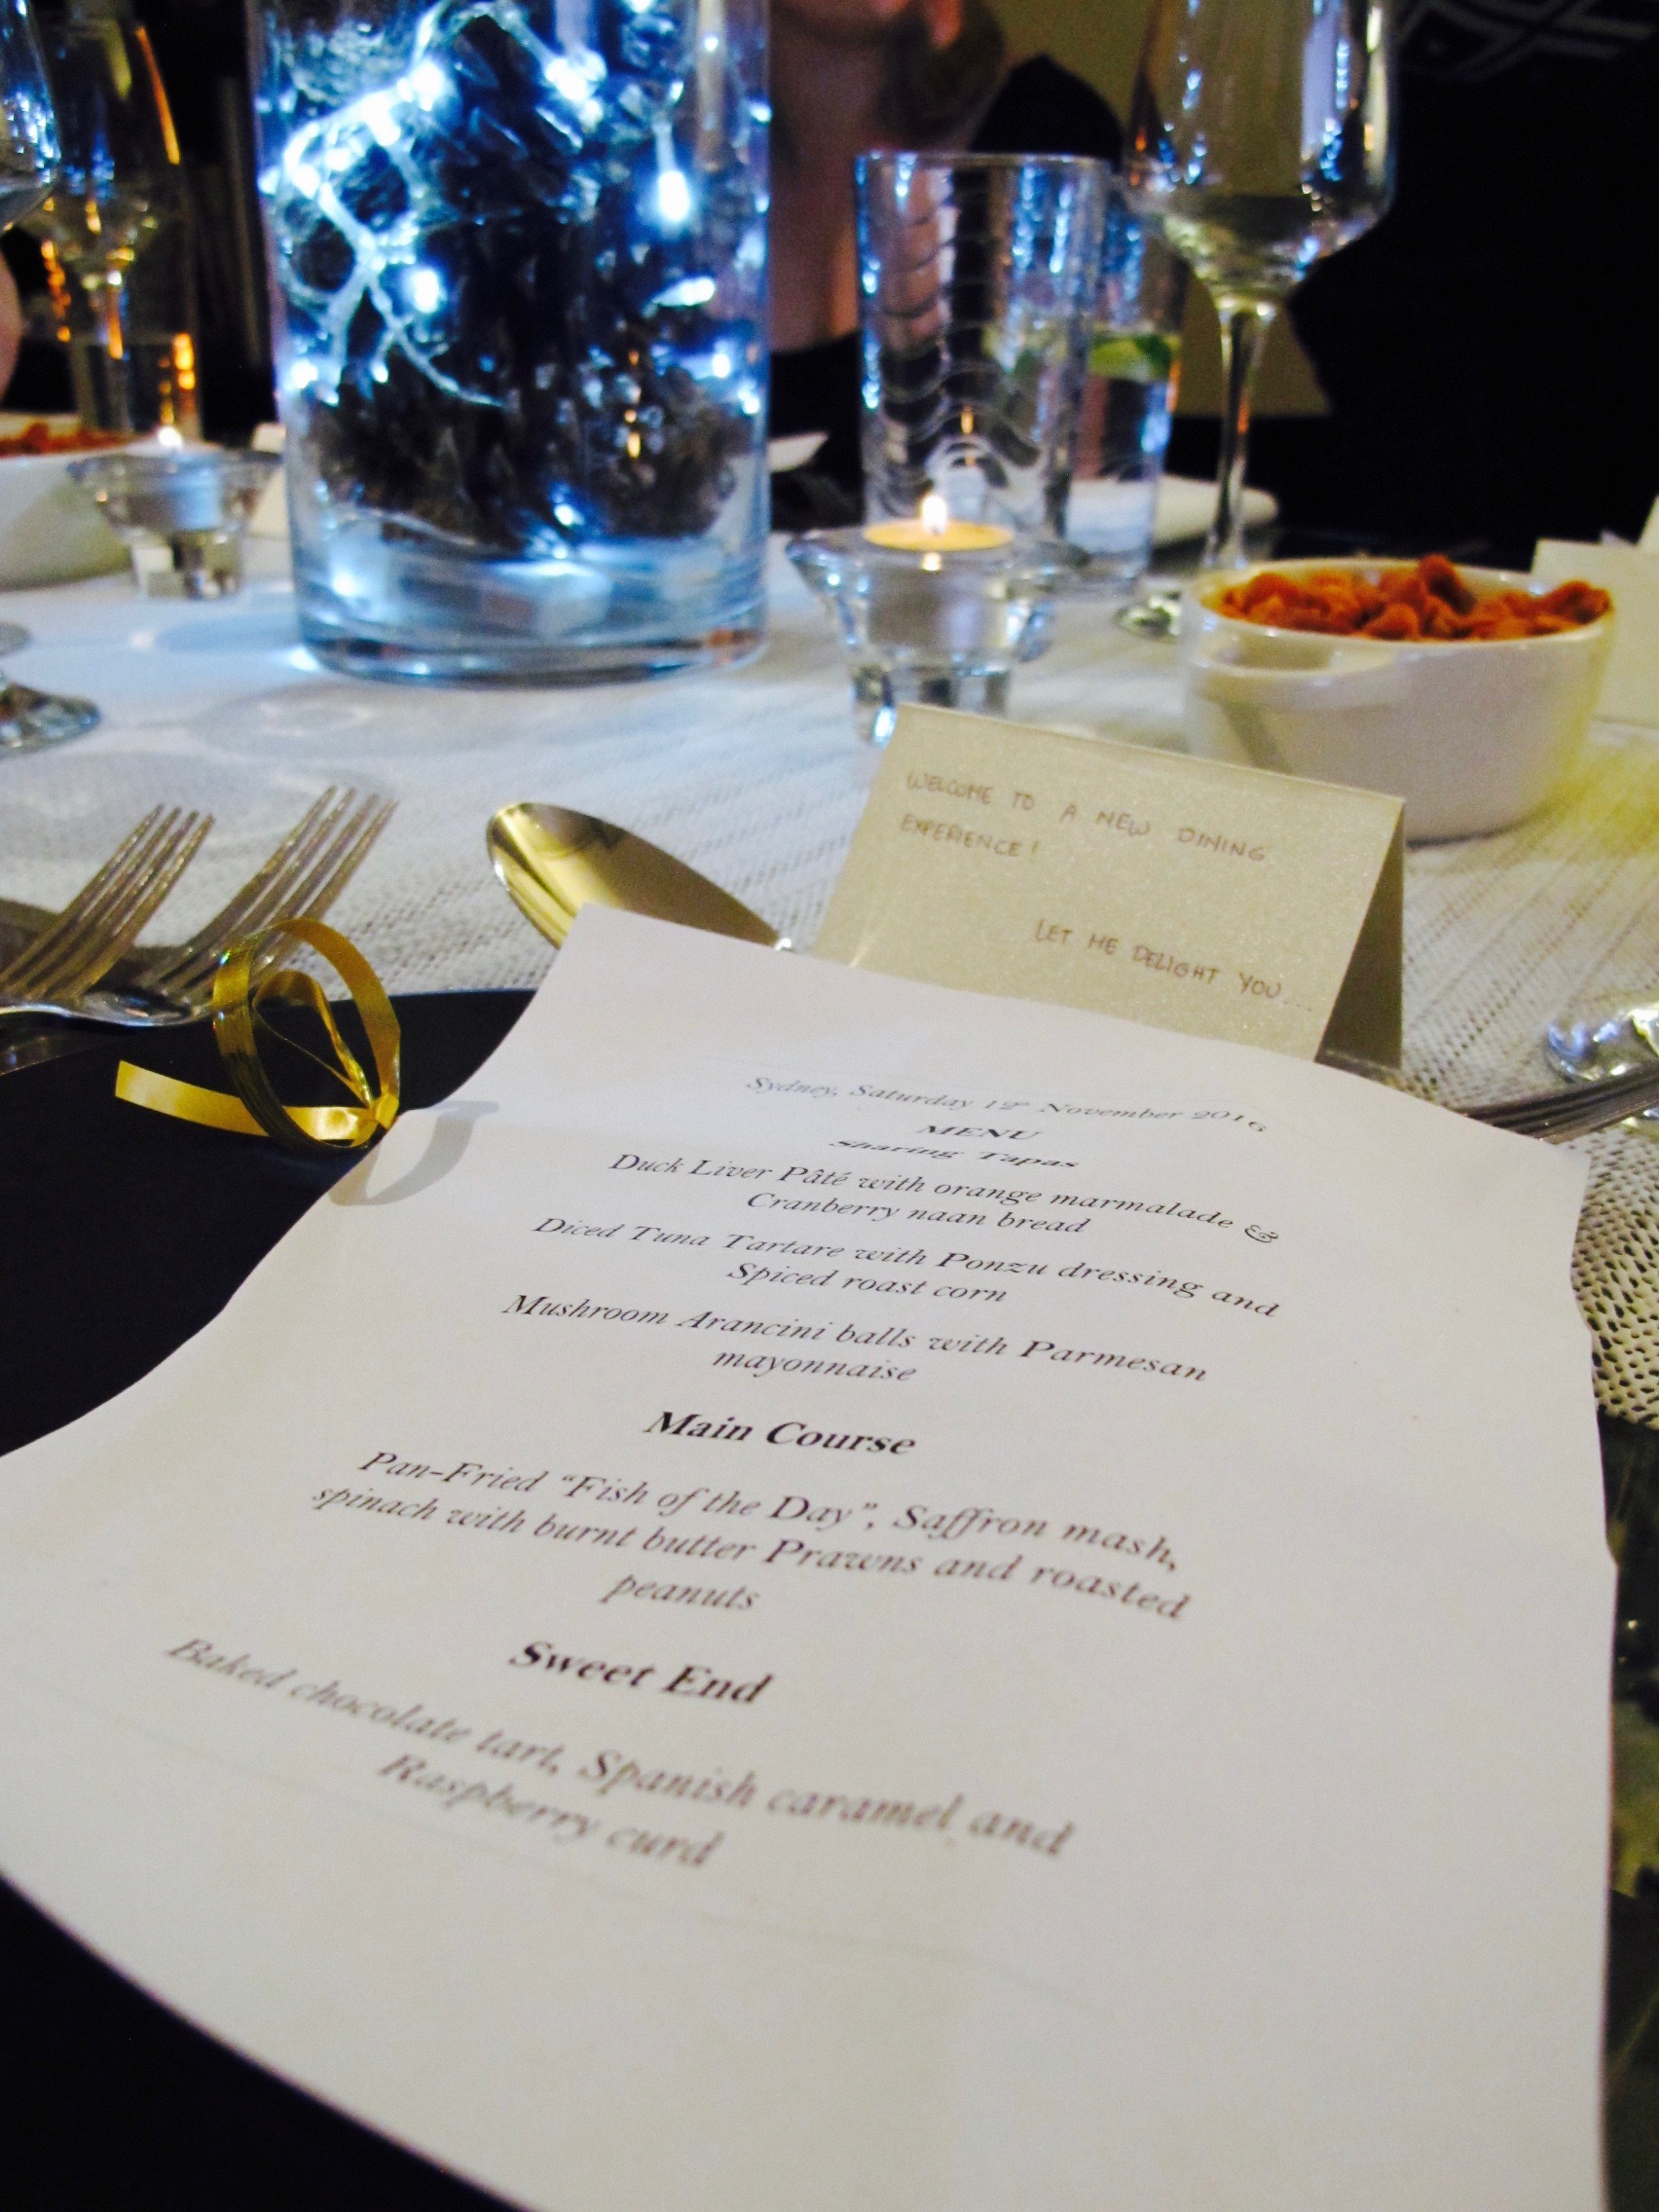 WELCOME TO A NEW DINING
EXPERIENCE!
LET ME DELIGHT YOU....
Sydney, Saturday 12th November 2016
MENU
Sharing Tapas
Duck Liver Pâté with orange marmalade &
Cranberry naan bread
Diced Tuna Tartare with Ponzu dressing and
Spiced roast corn
Mushroom Arancini balls with Parmesan
mayonnaise
Main Course
Pan-Fried “Fish of the Day”, Saffron mash,
spinach with burnt butter Prawns and roasted
peanuts
Sweet End
Baked chocolate tart, Spanish caramel and
Raspberry curd